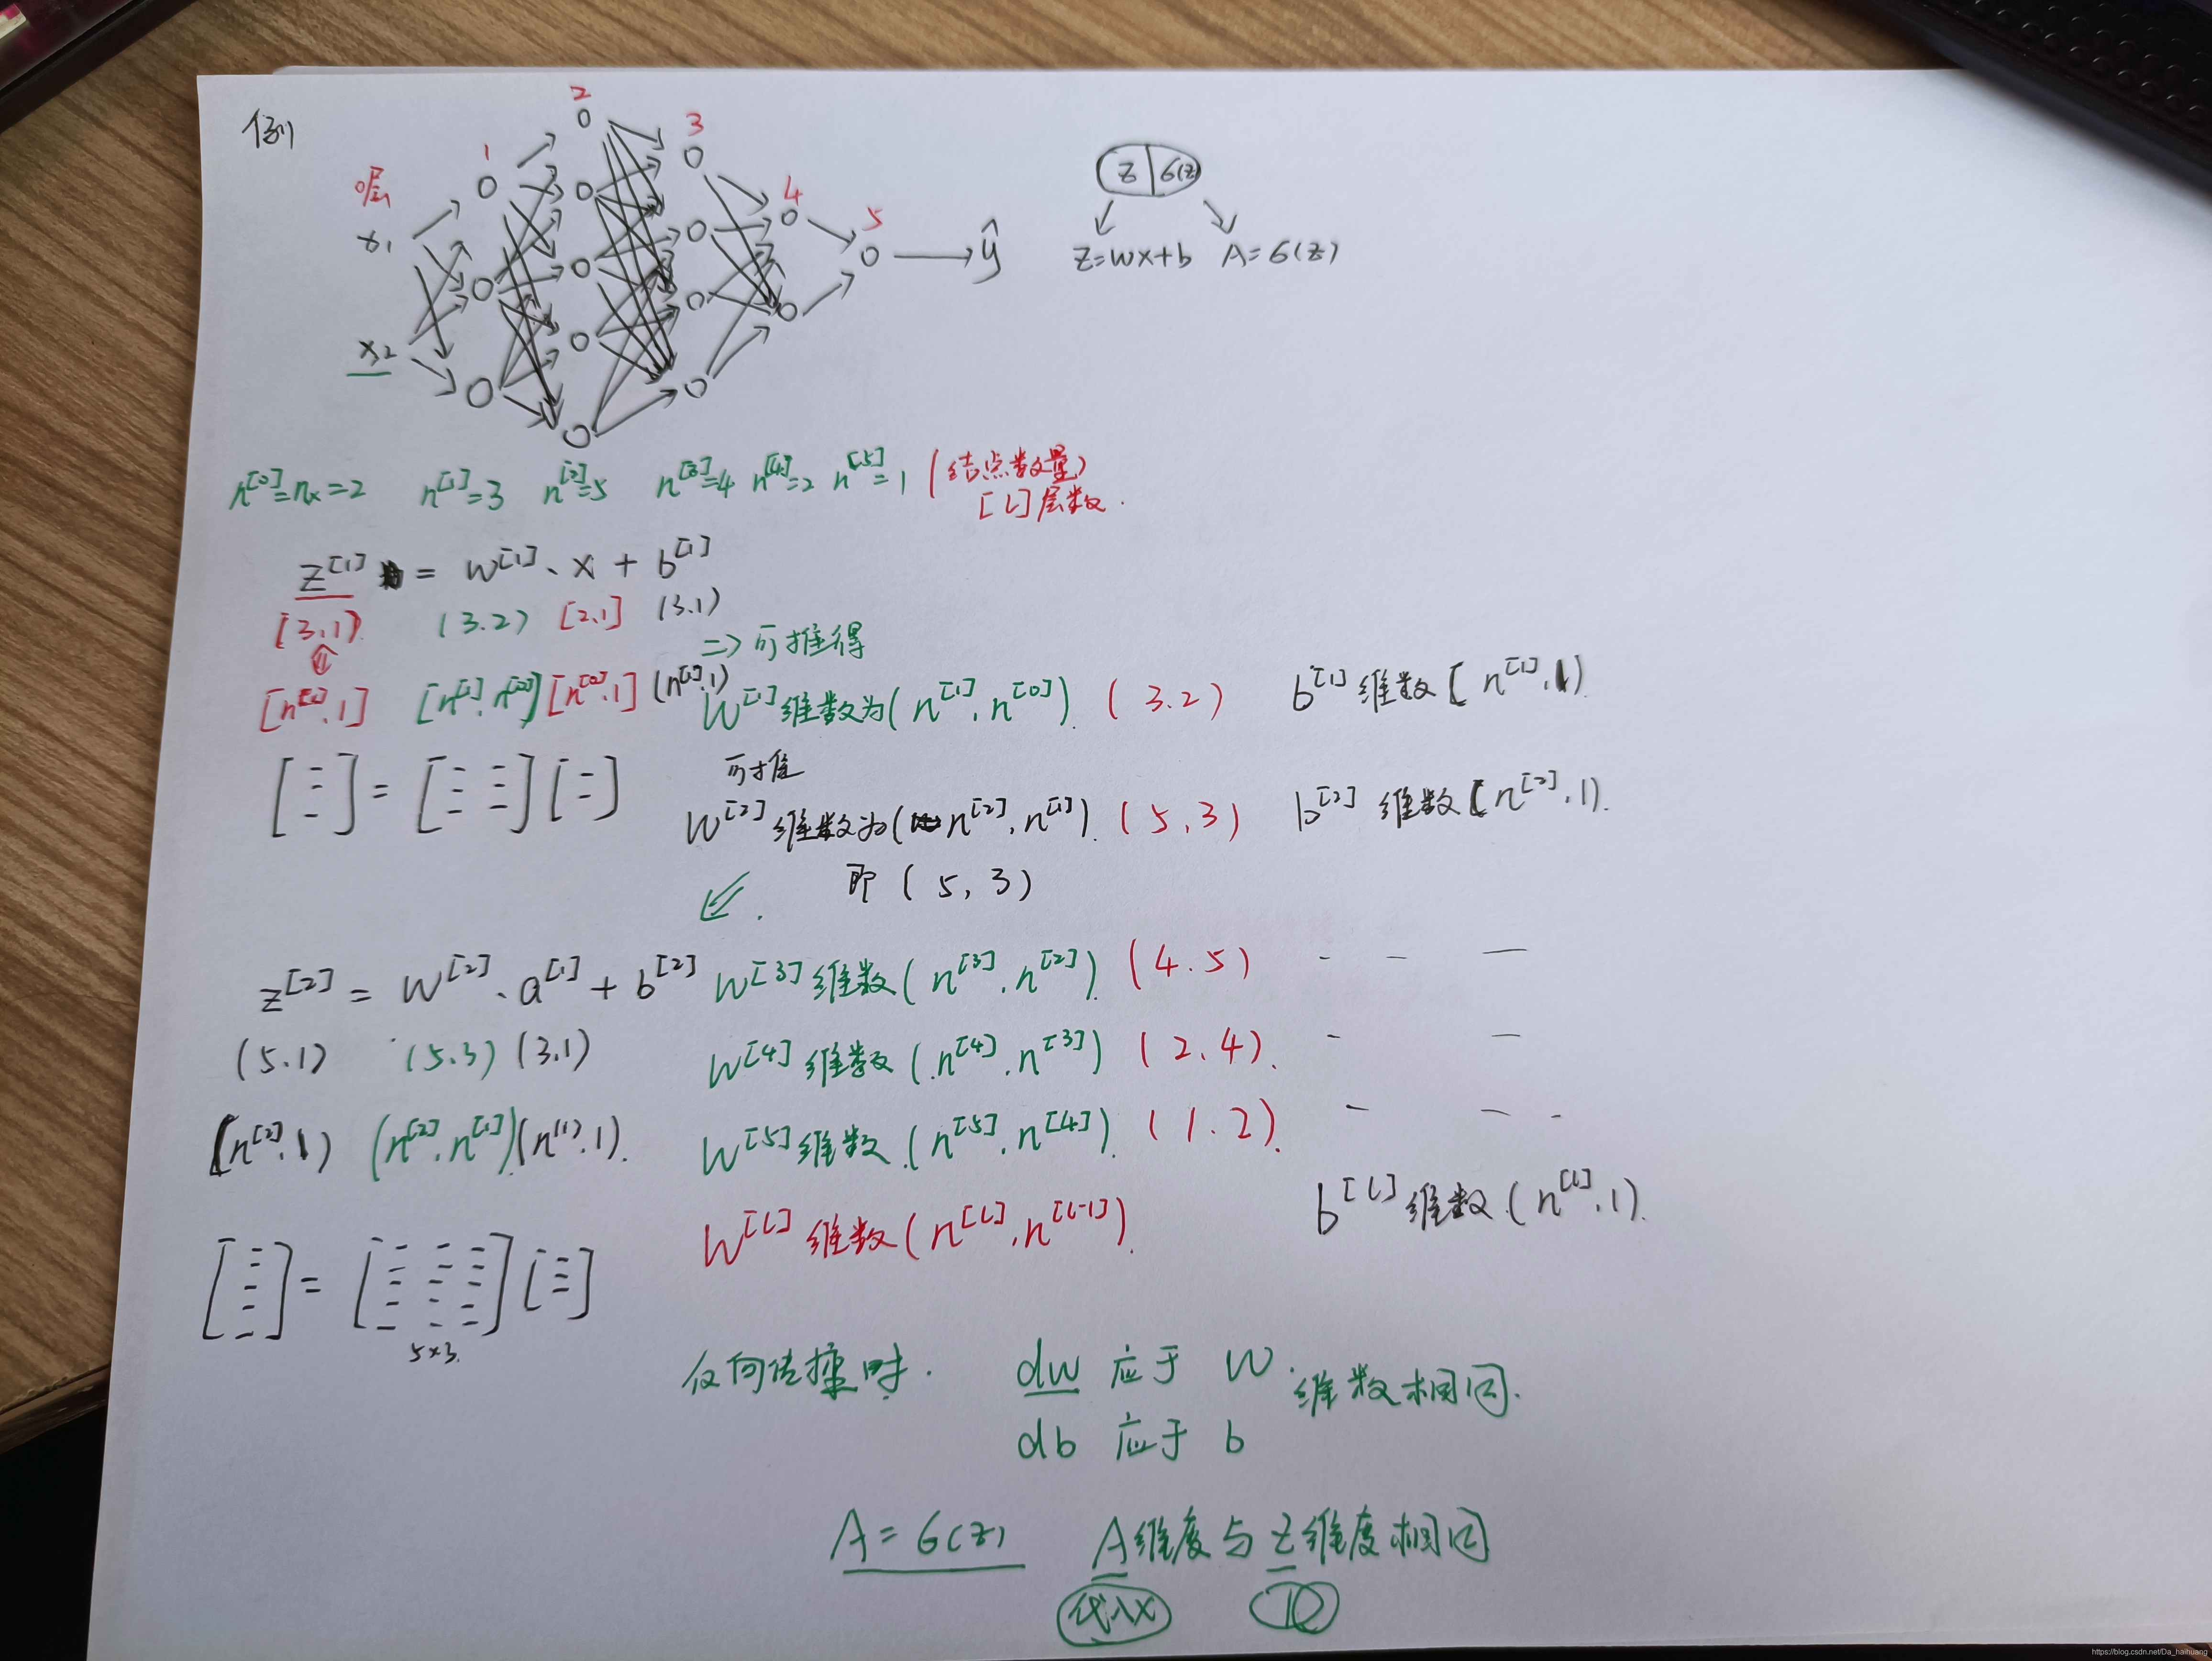 例
0层 1 2 3 4 5
x₁
x₂
ŷ
z | σ(z)
z=wx+b A=σ(z)
n^[0]=nₓ=2 n^[1]=3 n^[2]=5 n^[3]=4 n^[4]=2 n^[5]=1 (结点数量)
[l]层数.
z^[1] = w^[1]、x + b^[1]
[3,1) (3.2) [2,1] (3.1)
=> 可推得
[n^[1],1] [n^[1],n^[0]] [n^[0],1] (n^[1],1)
W^[1]维数为(n^[1],n^[0]). (3.2) b^[1]维数[n^[1],1)
可推
W^[2]维数为(n^[2],n^[1]). (5,3) b^[2]维数[n^[2],1).
即(5,3)
z^[2] = W^[2]、a^[1]+b^[2]
W^[3]维数(n^[3],n^[2]). (4.5)
(5.1) (5.3) (3.1)
W^[4]维数(n^[4],n^[3]) (2.4).
(n^[2],1) (n^[2],n^[1])(n^(1),1).
W^[5]维数(n^[5],n^[4]). (1.2).
W^[l]维数(n^[l],n^[l-1]). b^[l]维数(n^[l],1).
5×3.
反向传播时. dw 应于 W. 维数相同.
db 应于 b
A=σ(z) A维度与z维度相同
代入X
https://blog.csdn.net/Da_haihuang